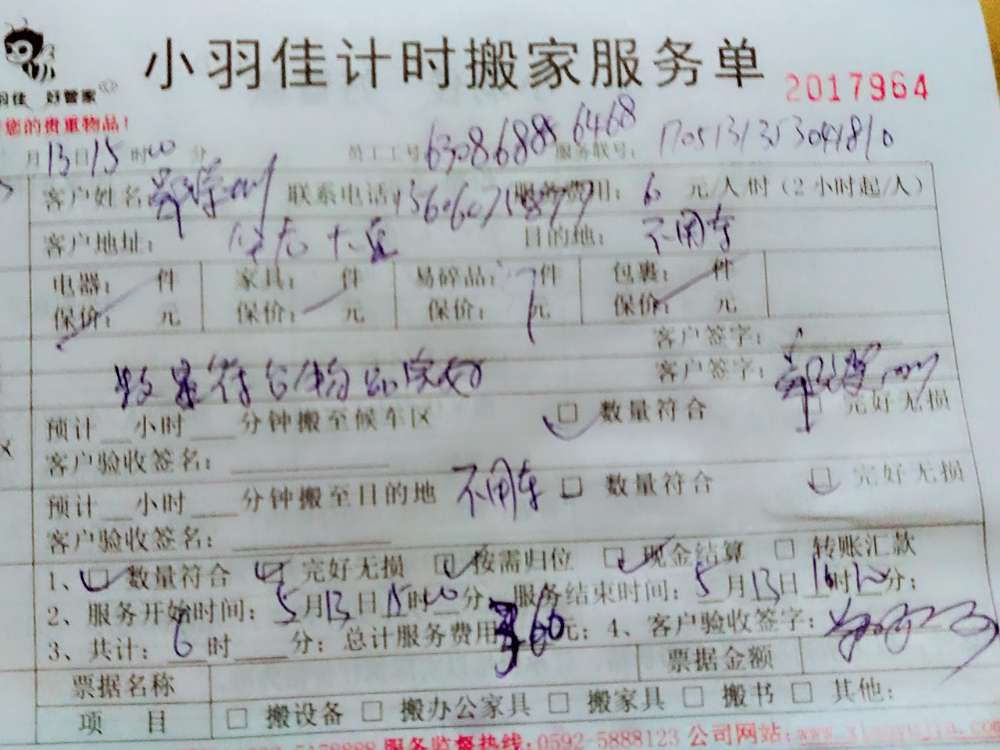 小羽佳计时搬家服务单
2017964
羽佳 好管家
您的贵重物品！
月13日15时00分 员工工号 服务联号：
客户姓名 联系电话 服务费用：6 元/人时（2小时起/人）
客户地址： 目的地：不用车
电器： 件 家具： 件 易碎品： 件 包裹： 件
保价： 元 保价： 元 保价： 元 保价： 元
客户签字：
数量符合物品完好 客户签字：
预计__小时___分钟搬至候车区 □ 数量符合 □ 完好无损
客户验收签名：
预计__小时___分钟搬至目的地 不用车 □ 数量符合 □ 完好无损
客户验收签名：
1、□ 数量符合 □ 完好无损 □ 按需归位 □ 现金结算 □ 转账汇款
2、服务开始时间：5月13日15时00分；服务结束时间：5月13日16时 分；
3、共计：6时___分；总计服务费用 60元；4、客户验收签字：
票据名称 票据金额
项 目 □ 搬设备 □ 搬办公家具 □ 搬家具 □ 搬书 □ 其他：
服务监督热线：0592-5888123 公司网站：